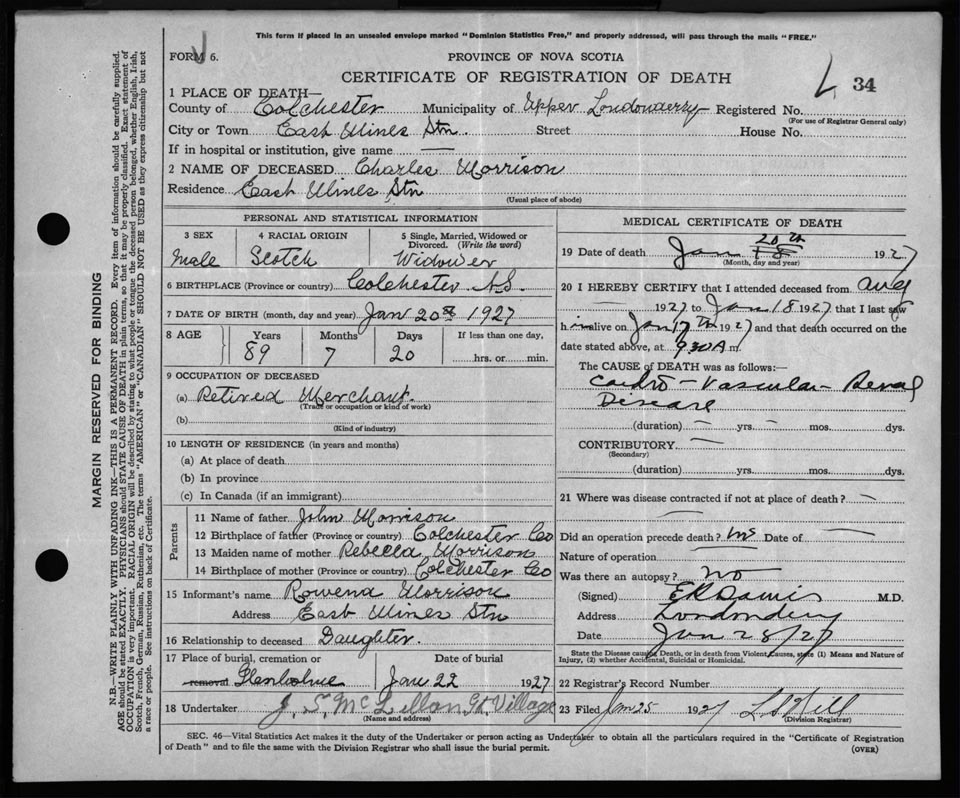 This form if placed in an unsealed envelope marked "Dominion Statistics Free," and properly addressed, will pass through the mails "FREE."
FORM 6.
PROVINCE OF NOVA SCOTIA
CERTIFICATE OF REGISTRATION OF DEATH
34
1 PLACE OF DEATH—
County of Colchester Municipality of Upper Londonderry Registered No.
(For use of Registrar General only)
City or Town East Mines Stn Street House No.
If in hospital or institution, give name —
2 NAME OF DECEASED Charles Morrison
Residence East Mines Stn
(Usual place of abode)
PERSONAL AND STATISTICAL INFORMATION
3 SEX 4 RACIAL ORIGIN 5 Single, Married, Widowed or Divorced. (Write the word)
Male Scotch Widower
6 BIRTHPLACE (Province or country) Colchester N.S.
7 DATE OF BIRTH (month, day and year) Jan 20th 1927
8 AGE Years Months Days If less than one day,
89 7 20 hrs. or min.
9 OCCUPATION OF DECEASED
(a) Retired Merchant
(Trade or occupation or kind of work)
(b)
(Kind of industry)
10 LENGTH OF RESIDENCE (in years and months)
(a) At place of death
(b) In province
(c) In Canada (if an immigrant)
Parents
11 Name of father John Morrison
12 Birthplace of father (Province or country) Colchester Co
13 Maiden name of mother Rebecca Morrison
14 Birthplace of mother (Province or country) Colchester Co
15 Informant's name Rowena Morrison
Address East Mines Stn
16 Relationship to deceased Daughter.
17 Place of burial, cremation or Date of burial
removal Glenholme Jan 22 1927
18 Undertaker J. T. McLellan Gt. Village
(Name and address)
MEDICAL CERTIFICATE OF DEATH
20th
19 Date of death Jan 18 1927
(Month, day and year)
20 I HEREBY CERTIFY that I attended deceased from Aug
1927 to Jan 18 1927 that I last saw
him alive on Jan 17th 1927 and that death occurred on the
date stated above, at 9.30 A m.
The CAUSE OF DEATH was as follows:—
Cardio-Vascular-Renal
Disease
(duration) — yrs. — mos. dys.
CONTRIBUTORY —
(Secondary)
(duration) yrs. mos. dys.
21 Where was disease contracted if not at place of death? —
Did an operation precede death? no Date of —
Nature of operation
Was there an autopsy? no
(Signed) M.D.
Address Londonderry
Date Jan 28/27
State the Disease causing Death, or in death from Violent Causes, state (1) Means and Nature of
Injury, (2) whether Accidental, Suicidal or Homicidal.
22 Registrar's Record Number
23 Filed Jan 25 1927
(Division Registrar)
SEC. 46—Vital Statistics Act makes it the duty of the Undertaker or person acting as Undertaker to obtain all the particulars required in the "Certificate of Registration
of Death" and to file the same with the Division Registrar who shall issue the burial permit.
(OVER)
MARGIN RESERVED FOR BINDING
N.B.—WRITE PLAINLY WITH UNFADING INK—THIS IS A PERMANENT RECORD. Every item of information should be carefully supplied.
AGE should be stated EXACTLY. PHYSICIANS should STATE CAUSE OF DEATH in plain terms, so that it may be properly classified. Exact statement of
OCCUPATION is very important. RACIAL ORIGIN will be described by stating to what people or tongue the deceased person belonged, whether English, Irish,
Scotch, French, German, Russian, Ruthenian, etc. The terms "AMERICAN" or "CANADIAN" SHOULD NOT BE USED as they express citizenship but not
a race or people. See instructions on back of Certificate.